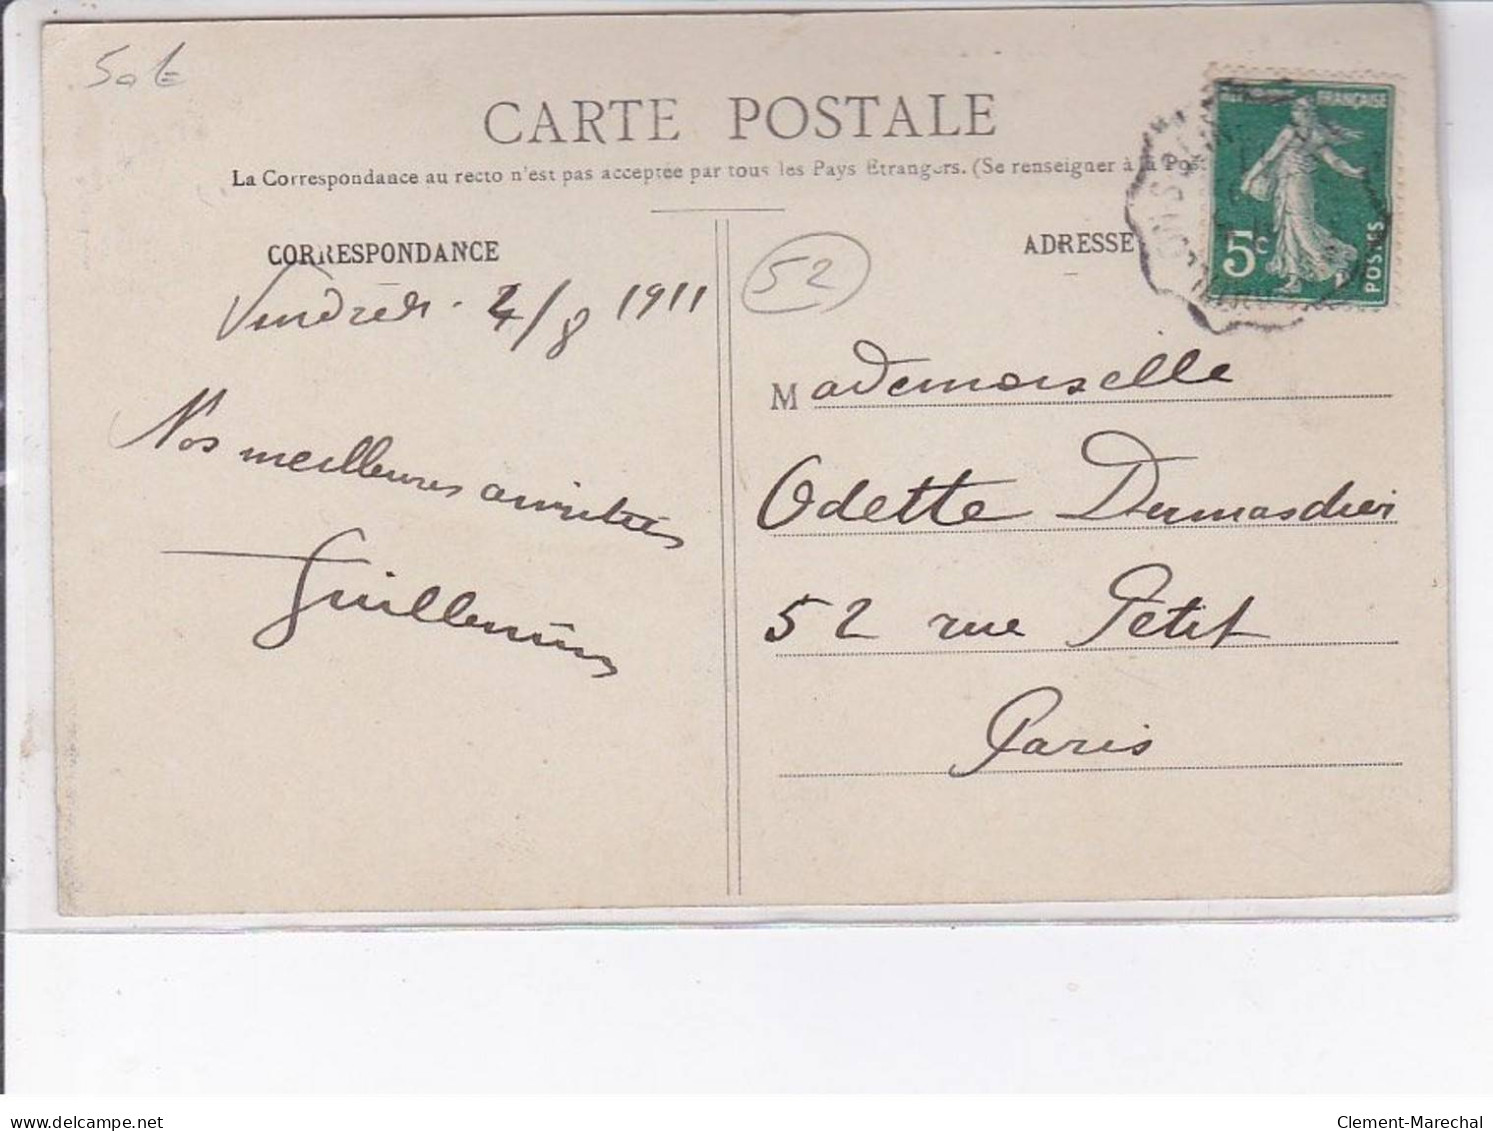 50 €
CARTE POSTALE
La Correspondance au recto n'est pas acceptée par tous les Pays Etrangers. (Se renseigner à la Pos
CORRESPONDANCE
ADRESSE
52
FRANÇAISE
5c
POSTES
Vendredi 4/8 1911
Mademoiselle
Nos meilleures amitiés
Odette
Guillemin
52 rue Petit
Paris
delcampe.net
Clement-Marechal